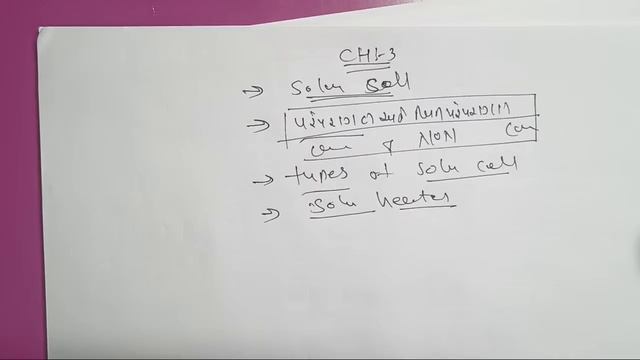 CH-3
→ Solar Sell
→ પરંપરાગત અને બિનપરંપરાગત
con & NON con
→ types of solar cell
→ Solar heater